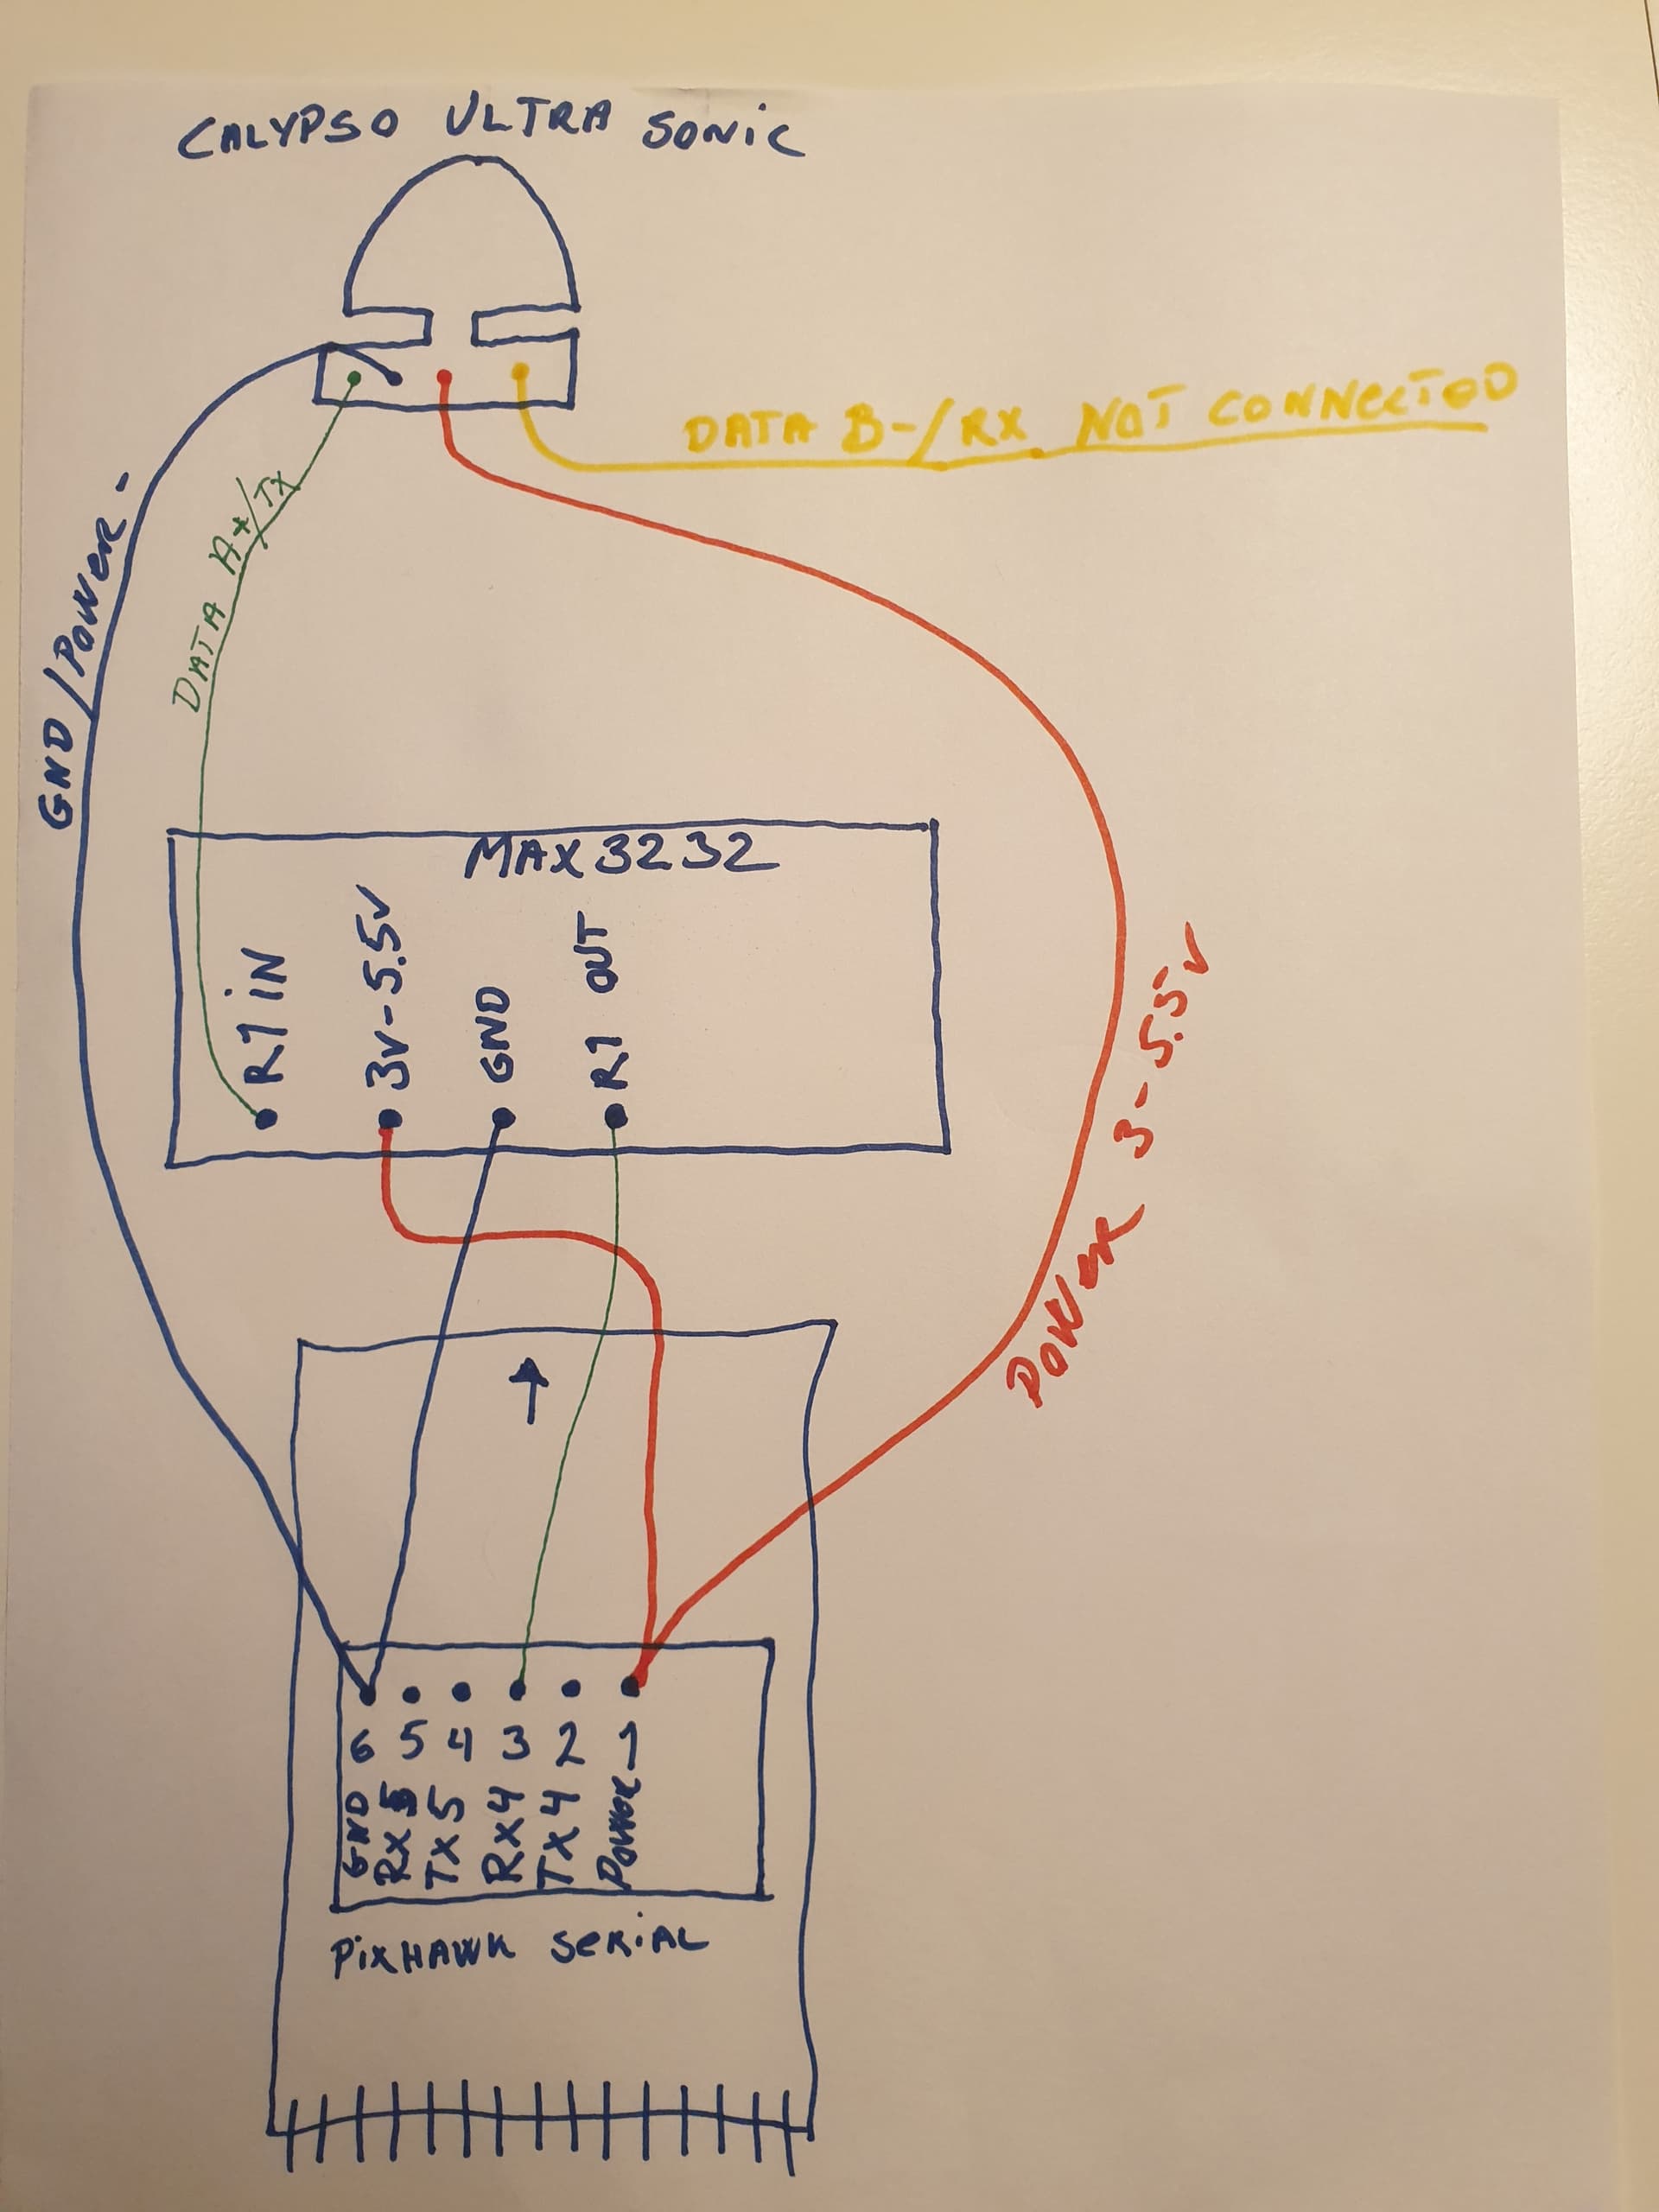 CALYPSO ULTRA SONIC
DATA B-/RX NOT CONNECTOD
GND/POWER -
DATA A+/TX
MAX3232
R1 IN
3V-5.5V
GND
R1 OUT
POWER 3-5.5V
6 5 4 3 2 1
GND
RX5
TX5
RX4
TX4
POWER
PIXHAWK SERIAL